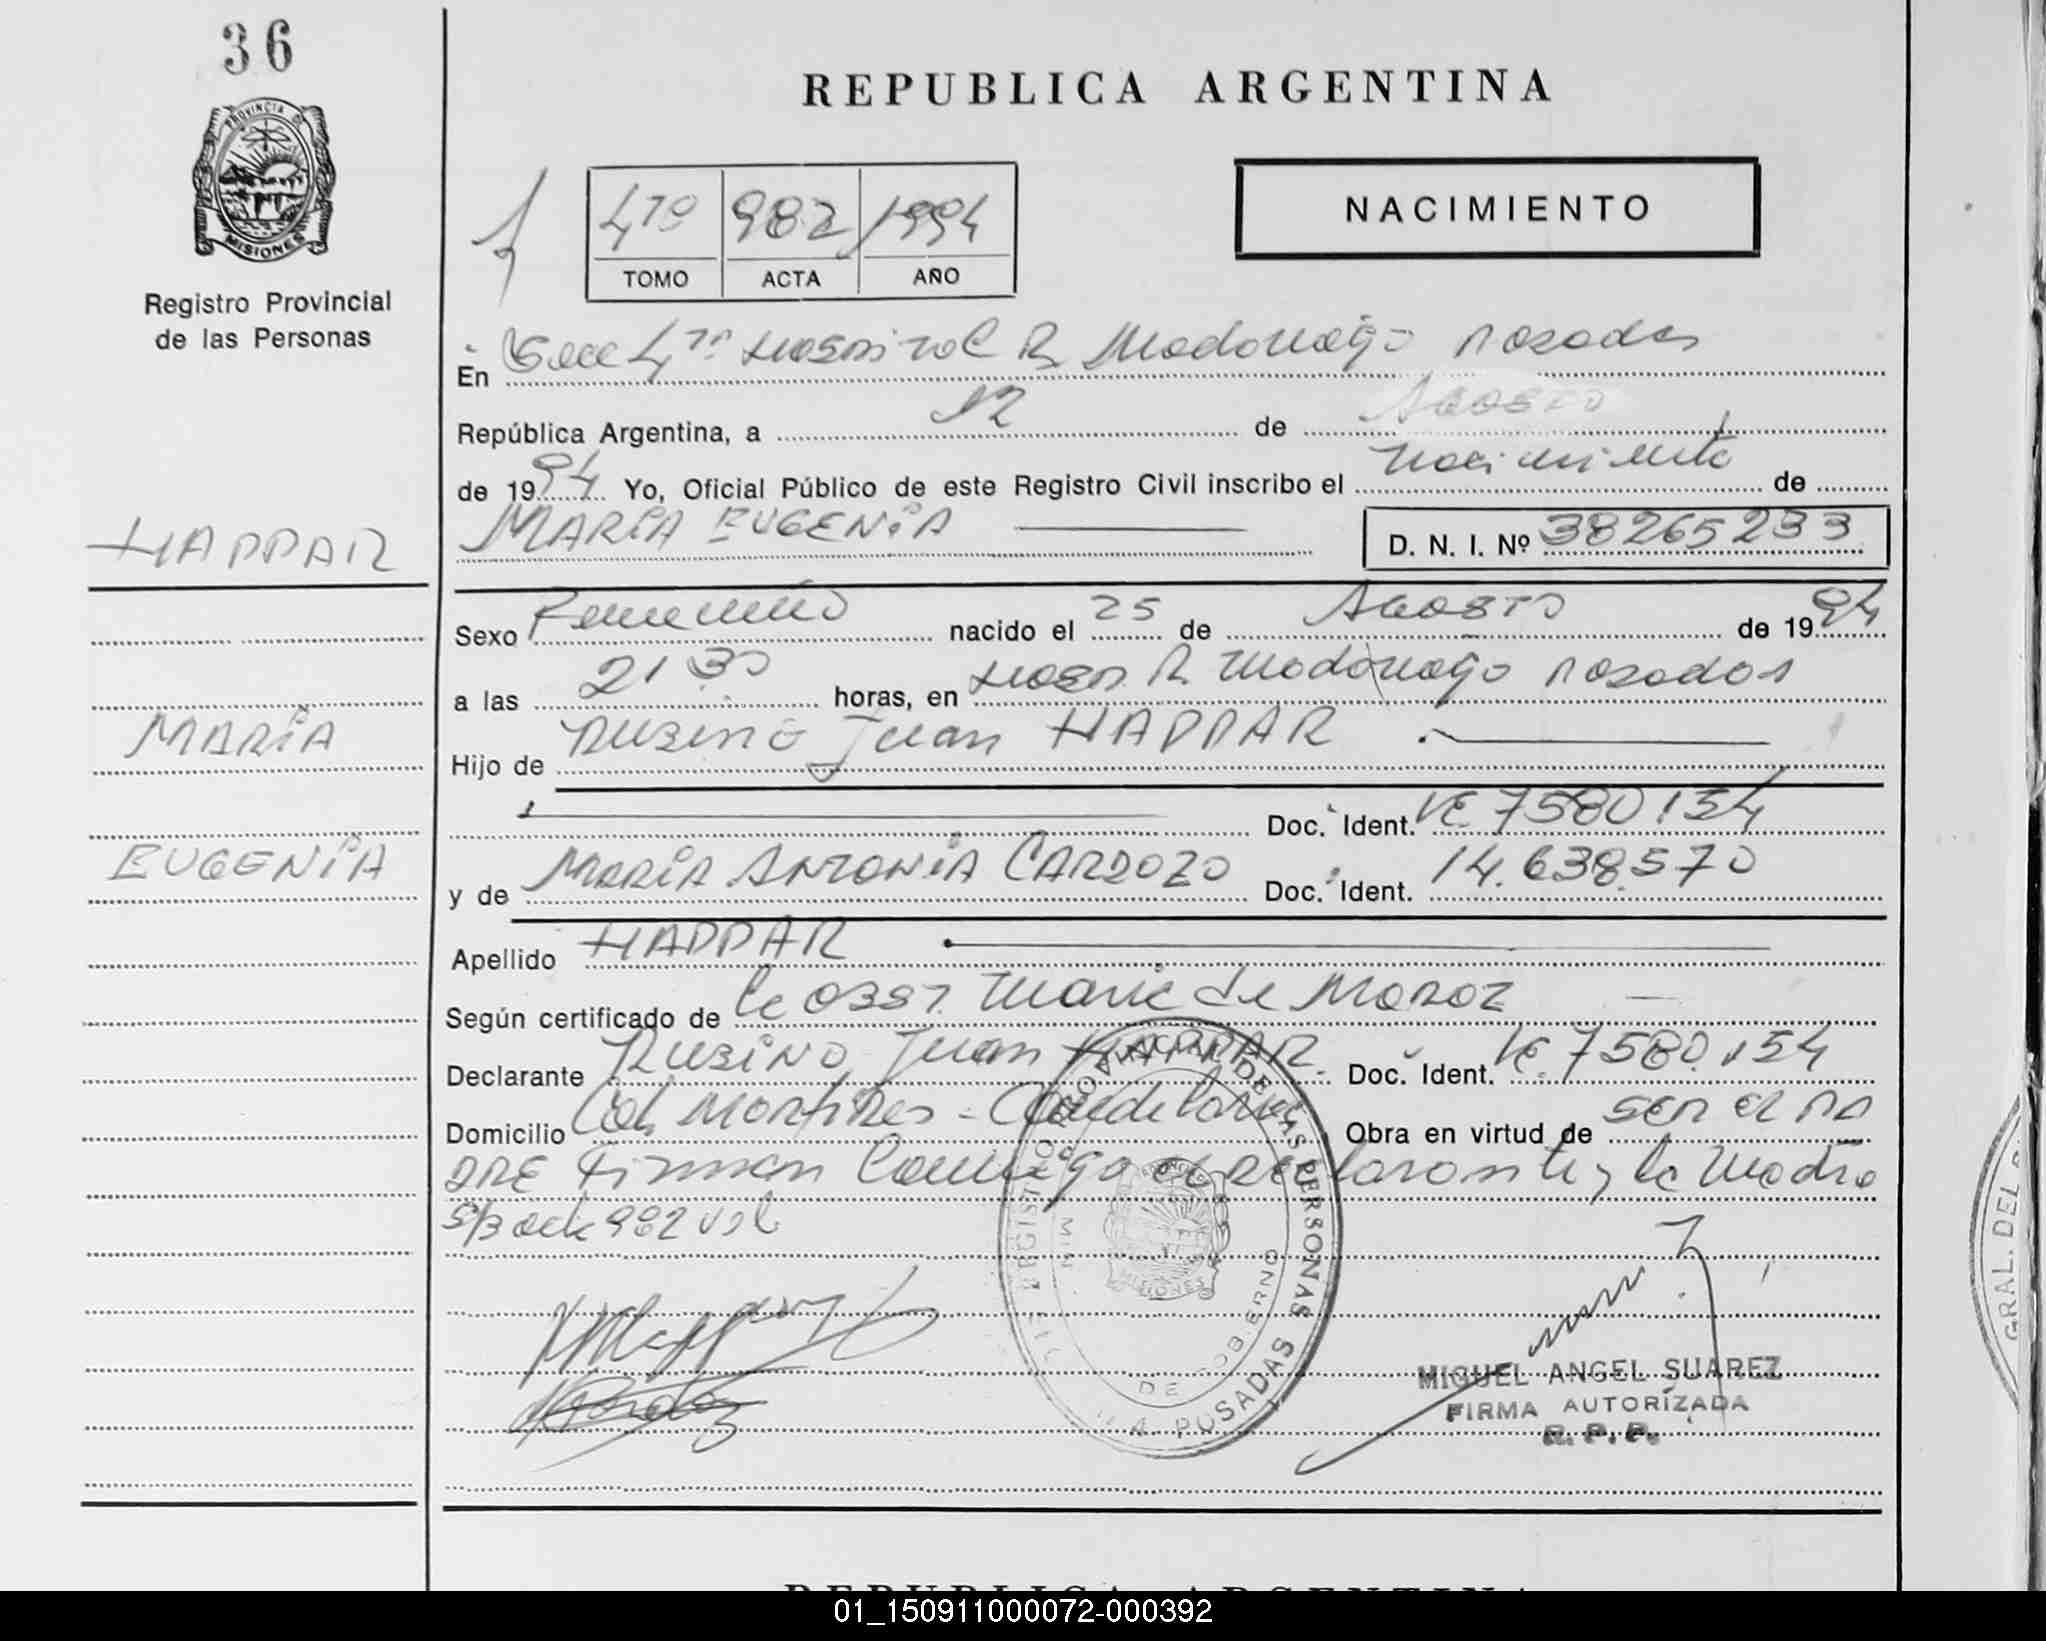 36
PROVINCIA DE
MISIONES
Registro Provincial
de las Personas
REPUBLICA ARGENTINA
4to 982 1994
TOMO ACTA AÑO
NACIMIENTO
En Secc 4ta Hospital R Madariaga Posadas
República Argentina, a 12 de Agosto
de 1994 Yo, Oficial Público de este Registro Civil inscribo el Nacimiento de
HAPPAR
MARÍA EUGENÍA D. N. I. Nº 38265233
Sexo Femenino nacido el 25 de Agosto de 1994
a las 21 30 horas, en Hosp. R Madariaga Posadas
MARÍA
Hijo de Rubino Juan HAPPAR
Doc. Ident. LE 7580154
EUGENÍA
y de MARÍA ANTONIA CARDOZO Doc. Ident. 14.638.570
Apellido HAPPAR
Según certificado de la Obst. Maria de
Declarante RUBINO Juan HAPPAR. Doc. Ident. LE. 7580.154
Domicilio Col Martires - Candelaria Obra en virtud de ser el PA
DRE Firman Conmigo el declarante y la Madre
S/B ack 982 vsl
REGISTRO PROVINCIAL DE LAS PERSONAS
MIN DE GOBIERNO
MISIONES
POSADAS
MIGUEL ANGEL SUAREZ
FIRMA AUTORIZADA
R. P. P.
GRAL. DEL
REPUBLICA ARGENTINA
01_150911000072-000392